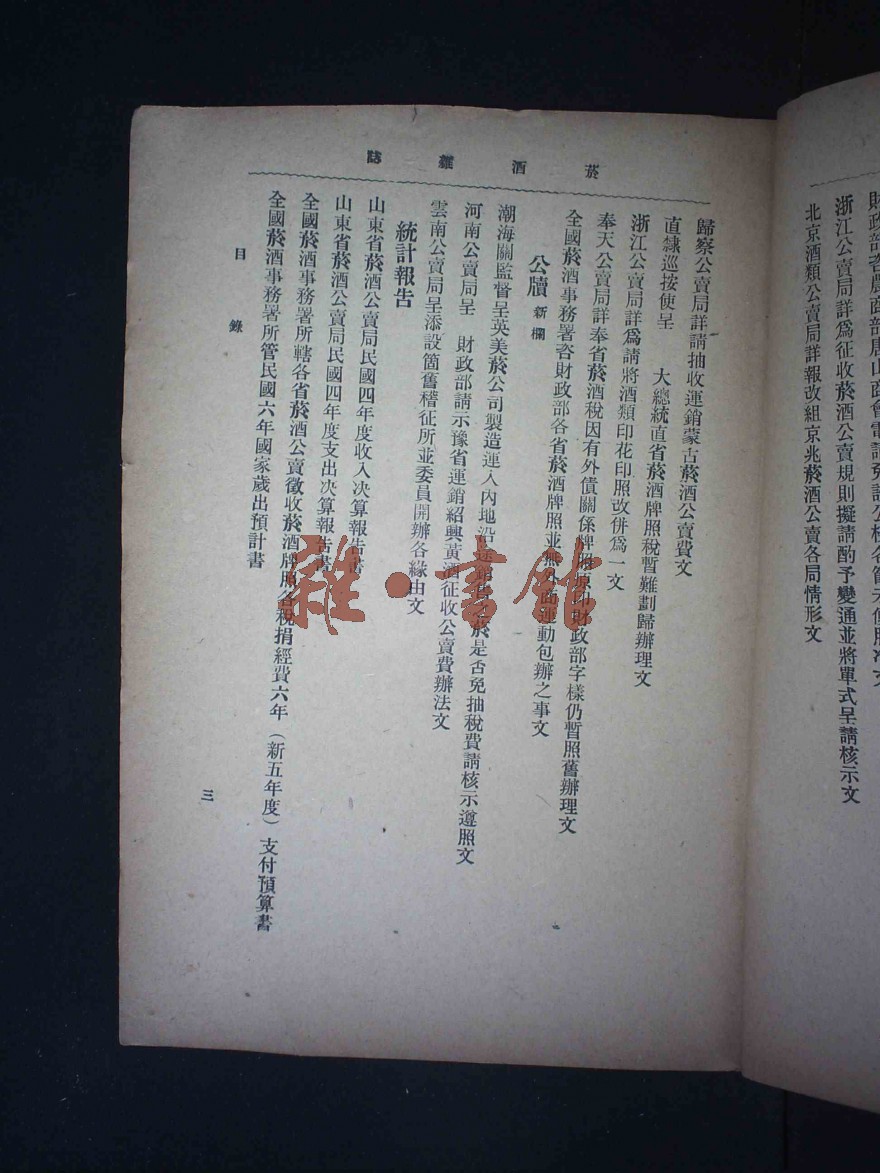 財政部咨農商部唐山商會電請
浙江公賣局詳爲征收菸酒公賣規則擬請酌予變通並將單式呈請核示文
北京酒類公賣局詳報改組京兆菸酒公賣各局情形文
菸酒雜誌
歸察公賣局詳請抽收運銷蒙古菸酒公賣費文
直隸巡按使呈 大總統直省菸酒牌照稅暫難劃歸辦理文
浙江公賣局詳爲請將酒類印花印照改併爲一文
奉天公賣局詳奉省菸酒稅因有外債關係牌照原印財政部字樣仍暫照舊辦理文
全國菸酒事務署咨財政部各省菸酒牌照並無外面運動包辦之事文
公牘 新欄
潮海關監督呈英美菸公司製造運入內地沿途銷售之菸是否免抽稅費請核示遵照文
河南公賣局呈 財政部請示豫省運銷紹興黃酒征收公賣費辦法文
雲南公賣局呈添設箇舊稽征所並委員開辦各緣由文
統計報告
山東省菸酒公賣局民國四年度收入決算報告書
山東省菸酒公賣局民國四年度支出決算報告書
全國菸酒事務署所轄各省菸酒公賣徵收菸酒牌照各稅捐經費六年（新五年度）支付預算書
全國菸酒事務署所管民國六年國家歲出預計書
目錄
三
雜·書館